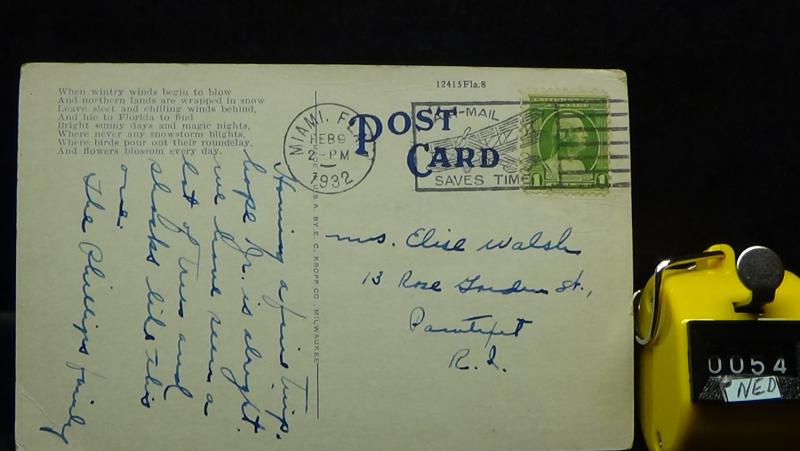 12415 Fla.8
When wintry winds begin to blow
And northern lands are wrapped in snow
Leave sleet and chilling winds behind,
And hie to Florida to find
Bright sunny days and magic nights,
Where never any snowstorm blights,
Where birds pour out their roundelay,
And flowers blossom every day.
POST
CARD
MIAMI, FLA.
FEB 9
2 - PM
1932
AIR-MAIL
SAVES TIME
1 1
BY E. C. KROPP CO., MILWAUKEE
Having a fine trip,
hope Jr. is alright.
we have seen a
lot of trees and
shacks like this
one.
The Phillips family
Mrs. Elise Walsh
13 Rose Garden St.,
Pawtuket
R. I.
0054
NED